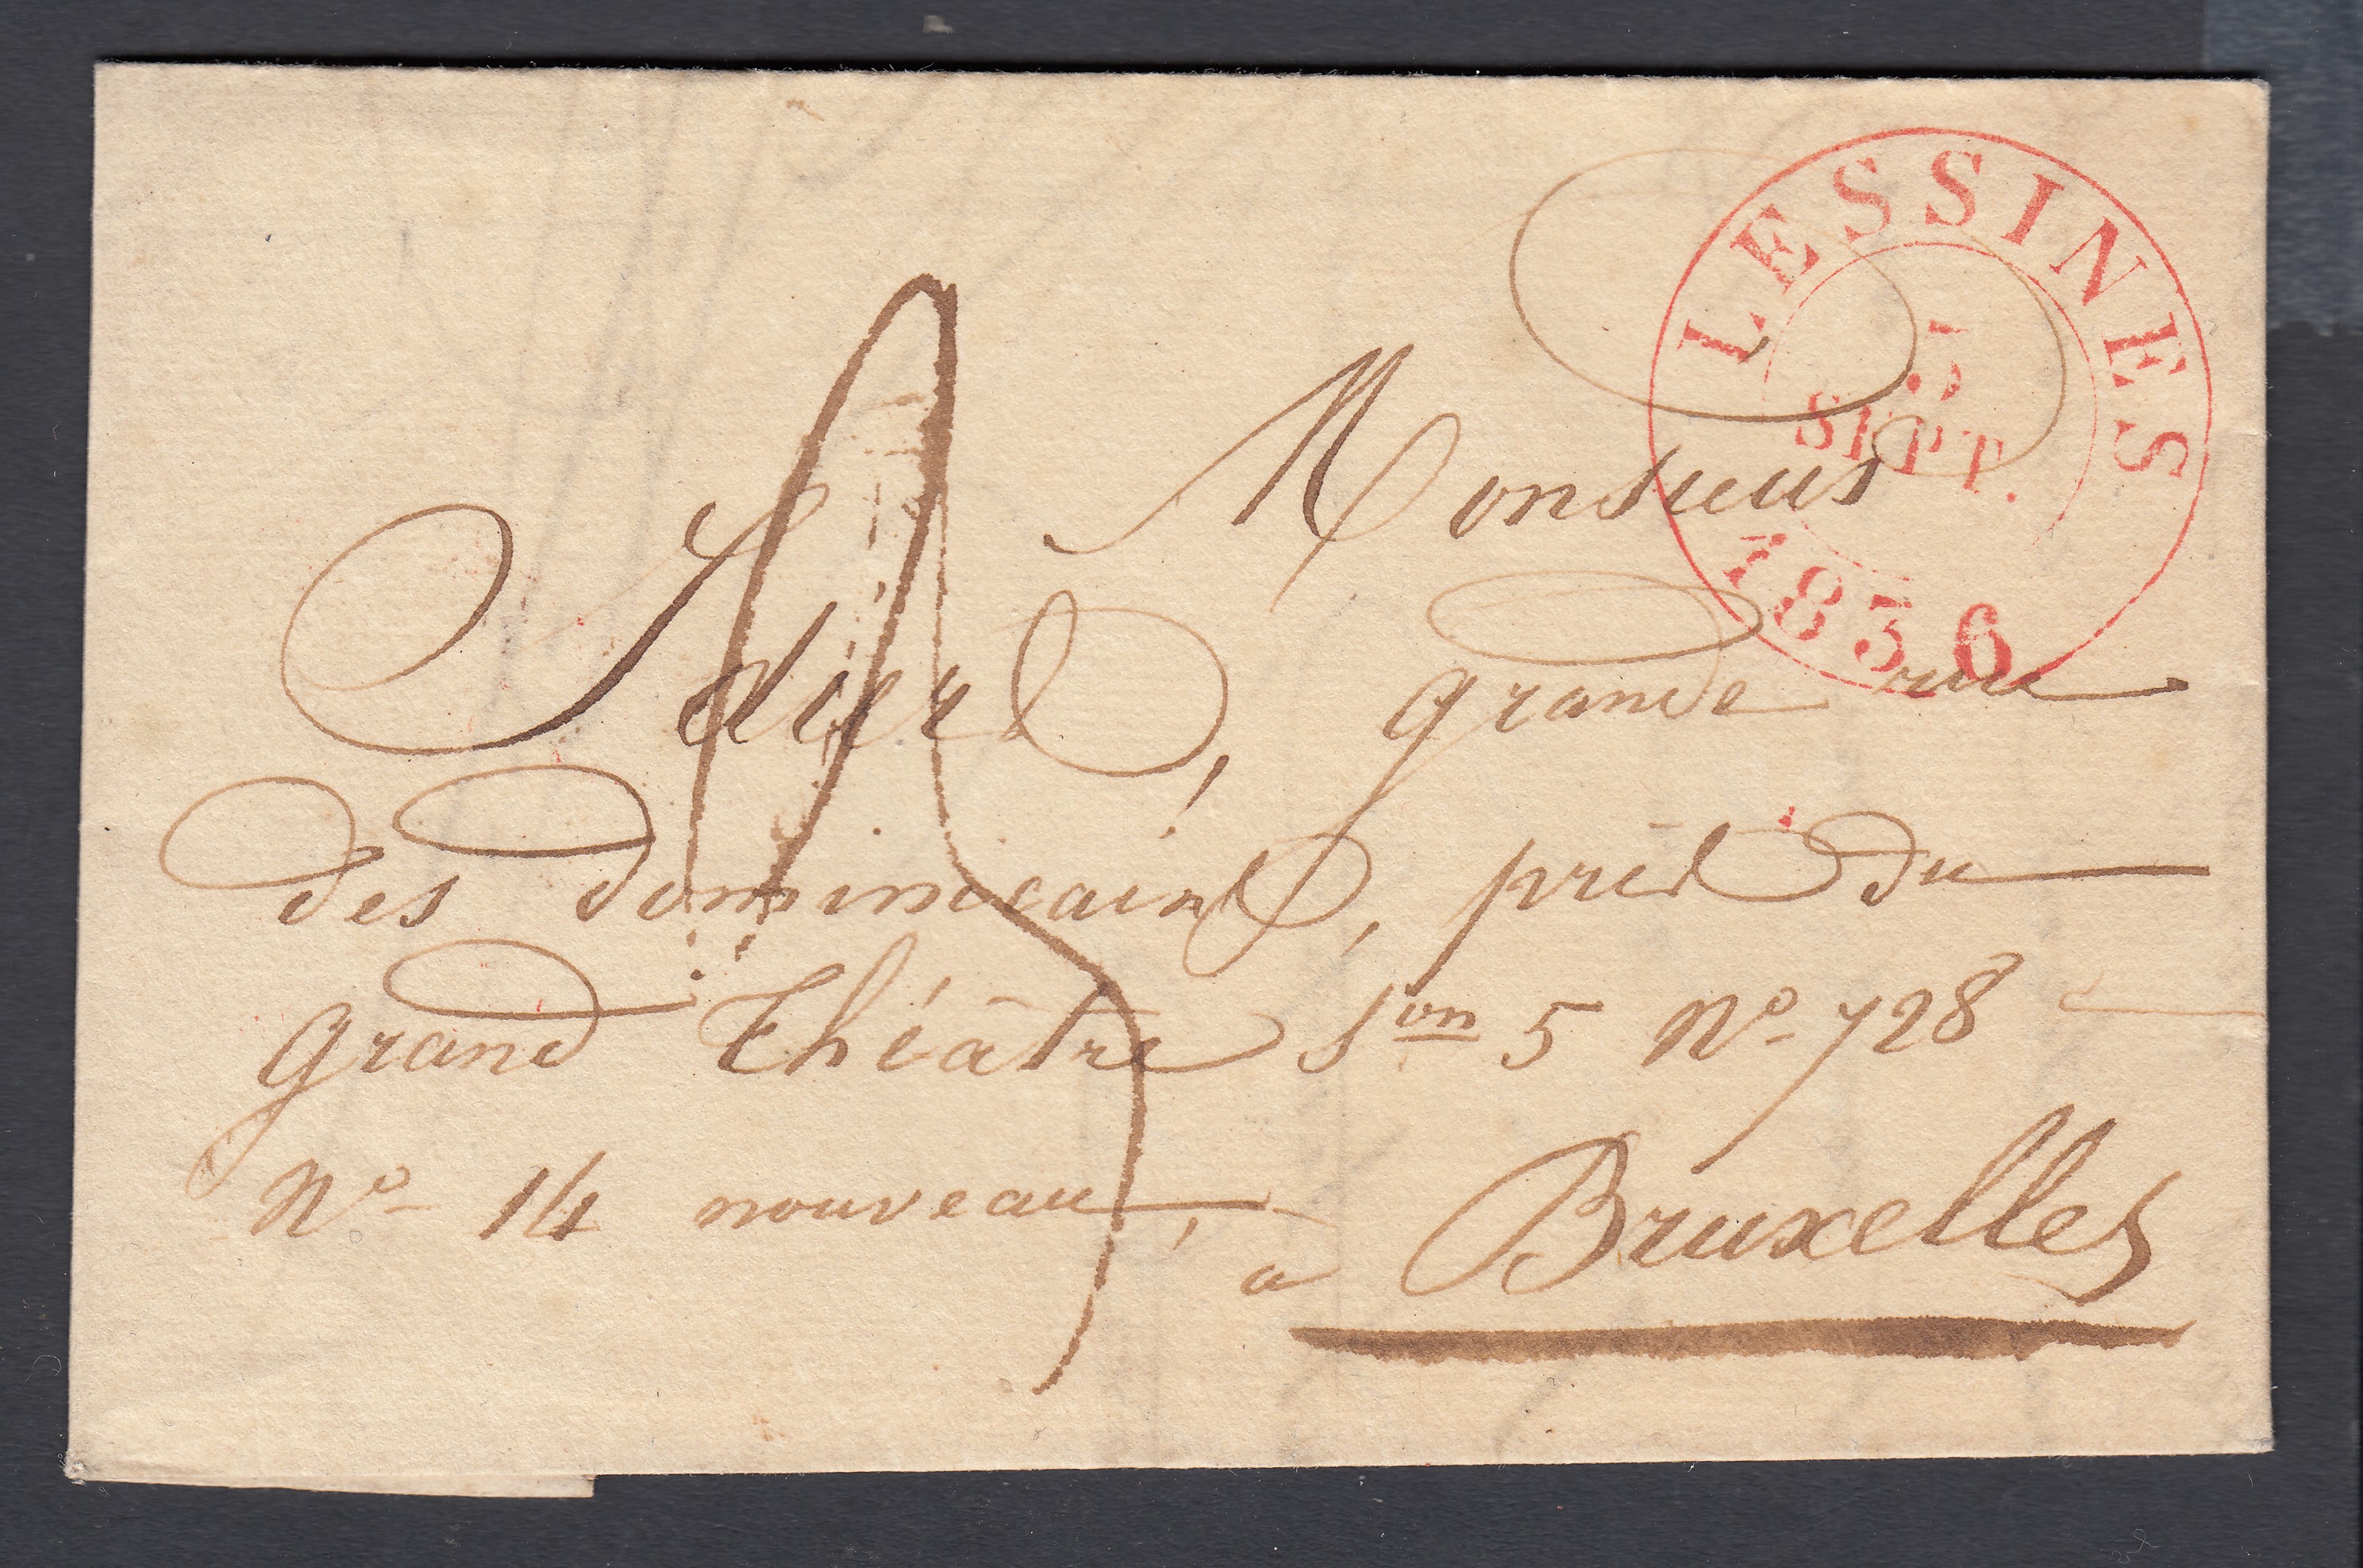 LESSINES
5
SEPT.
1836
Monsieur
Idiers, grande rue
des dominicains, près du
grand théâtre Son 5 No 728
No 14 nouveau,
à Bruxelles